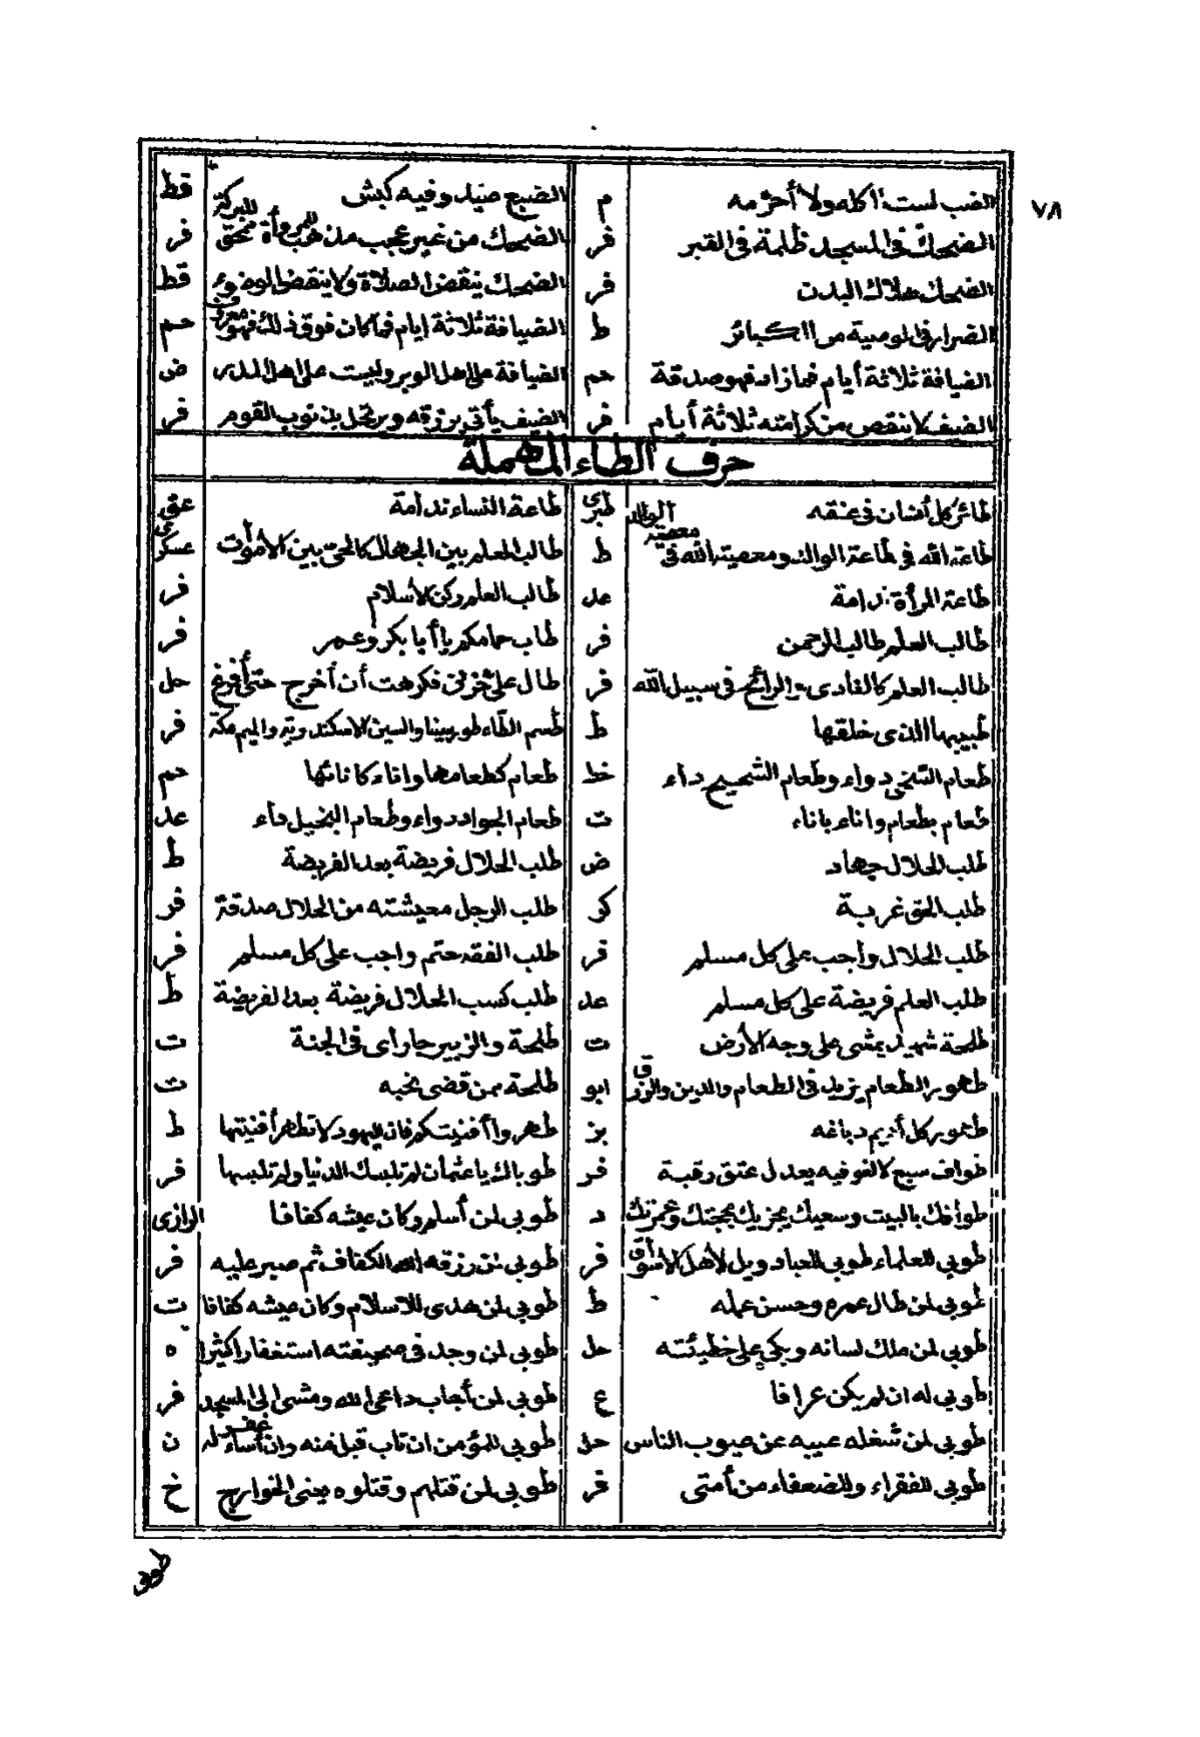 ٧٨
الضب لست آكله ولا أحرمه م الضبع صيد وفيه كبش قط
الضحك في المسجد ظلمة في القبر فر الضحك من غير عجب مذهب للمروأة ممحق للبركة فر
الضحك هلاك البدن فر الضحك ينقض الصلاة ولا ينقض الوضوء قط
الضرار في الوصية من الكبائر ط الضيافة ثلاثة ايام فما كان فوق ذلك فهو معروف حم
الضيافة ثلاثة أيام فما زاد فهو صدقة حم الضيافة على اهل الوبر وليست على اهل المدر ض
الضيف لا ينقص من كرامته ثلاثة أيام فر الضيف يأتي برزقه ويرتحل بذنوب القوم فر
حرف الطاء المهملة
طائر كل أنسان في عنقه طبري طاعة النساء ندامة عق
طاعة الله في طاعة الوالد ومعصية الله في معصية الوالد ط طالب العلم بين الجهال كالحي بين الأموات عسكري
طاعة المرأة ندامة عد طالب العلم ركن الأسلام فر
طالب العلم طالب الرحمن فر طاب حمامكم يا أبا بكر وعمر فر
طالب العلم كالغادى والرائح في سبيل الله فر طال على حزبي فكرهت أن أخرج حتى أفرغ حل
طبيبها الذى خلقها ط طسم الطاء طور سينا والسين الاسكندرية والميم مكة فر
طعام السخى دواء وطعام الشحيح داء خط طعام كطعامها واناء كانائها حم
طعام بطعام واناء باناء ت طعام الجواد دواء وطعام البخيل داء عد
طلب الحلال جهاد ض طلب الحلال فريضة بعد الفريضة ط
طلب الحق غربة كر طلب الرجل معيشته من الحلال صدقة فر
طلب الحلال وأجب على كل مسلم فر طلب الفقه حتم واجب على كل مسلم فر
طلب العلم فريضة على كل مسلم عد طلب كسب الحلال فريضة بعد الفريضة ط
طلحة شهيد يمشى على وجه الأرض ت طلحة والزبير جاراى في الجنة ت
طهور الطعام يزيد في الطعام والدين والرزق ابو طلحة ممن قضى نحبه ت
طهور كل أديم دباغه بز طهروا أفنيتكم فان اليهود لا تطهر أفنيتها ط
طواف سبع لا لغو فيه يعدل عتق رقبة فر طوباك يا عثمان لم تلبسك الدنيا ولم تلبسها فر
طوافك بالبيت وسعيك يجزيك بحجتك وعمرتك د طوبى لمن أسلم وكان عيشه كفافا الرازى
طوبى للعلماء طوبى للعباد ويل لأهل الاسواق فر طوبى لمن رزقه الله الكفاف ثم صبر عليه فر
طوبى لمن طال عمره وحسن عمله ط طوبى لمن هدى للاسلام وكان عيشه كفافا ت
طوبى لمن ملك لسانه وبكى على خطيئته حل طوبى لمن وجد في صحيفته استغفارا كثيرا ه
طوبى له ان لم يكن عرافا ع طوبى لمن أجاب داعى الله ومشى الى المسجد فر
طوبى لمن شغله عيبه عن عيوب الناس حل طوبى للمؤمن ان تاب قبل منه وان أساء غفر له ن
طوبى للفقراء وللضعفاء من أمتى فر طوبى لمن قتلهم وقتلوه يعنى الخوارج خ
طوبى